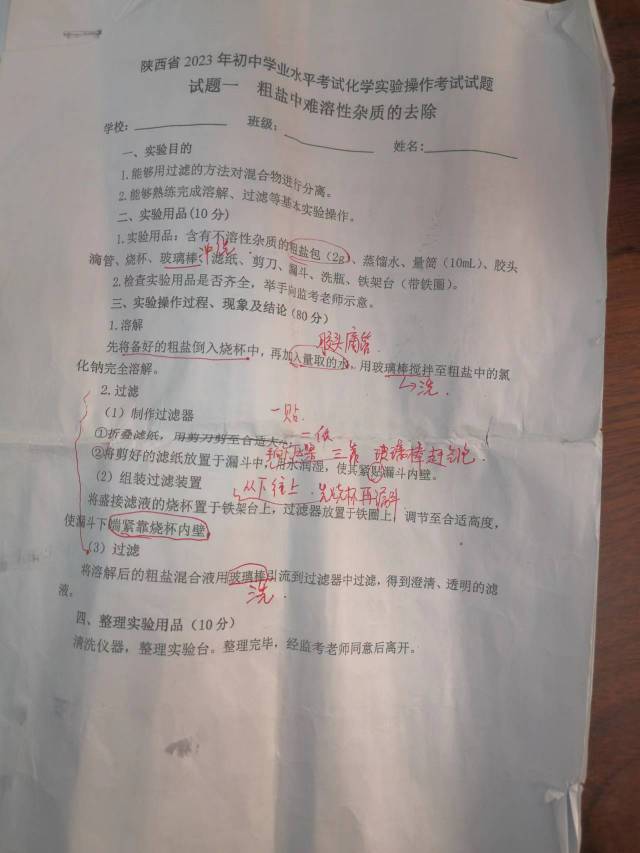 陕西省2023年初中学业水平考试化学实验操作考试试题
试题一 粗盐中难溶性杂质的去除
学校: 班级: 姓名:
一、实验目的
1.能够用过滤的方法对混合物进行分离。
2.能够熟练完成溶解、过滤等基本实验操作。
二、实验用品(10分)
1.实验用品：含有不溶性杂质的粗盐包(2g)、蒸馏水、量筒(10mL)、胶头
冲洗
滴管、烧杯、玻璃棒、滤纸、剪刀、漏斗、洗瓶、铁架台(带铁圈)。
2.检查实验用品是否齐全，举手向监考老师示意。
三、实验操作过程、现象及结论(80分)
1.溶解
胶头滴管
先将备好的粗盐倒入烧杯中，再加入量取的水，用玻璃棒搅拌至粗盐中的氯
化钠完全溶解。
洗.
2.过滤
(1)制作过滤器
一贴.
①折叠滤纸，用剪刀剪至合适大小
二低
三靠 玻璃棒赶气泡.
②将剪好的滤纸放置于漏斗中，用水润湿，使其紧贴漏斗内壁。
(2)组装过滤装置
从下往上. 先烧杯再漏斗
将盛接滤液的烧杯置于铁架台上，过滤器放置于铁圈上，调节至合适高度，
使漏斗下端紧靠烧杯内壁。
(3)过滤
将溶解后的粗盐混合液用玻璃棒引流到过滤器中过滤，得到澄清、透明的滤
液。
洗.
四、整理实验用品(10分)
清洗仪器，整理实验台。整理完毕，经监考老师同意后离开。